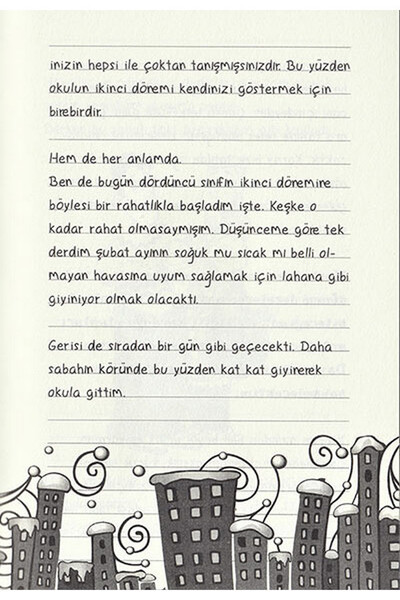 inizin hepsi ile çoktan tanışmışsınızdır. Bu yüzden
okulun ikinci dönemi kendinizi göstermek için
birebirdir.
Hem de her anlamda.
Ben de bugün dördüncü sınıfın ikinci dönemine
böylesi bir rahatlıkla başladım işte. Keşke o
kadar rahat olmasaymışım. Düşünceme göre tek
derdim şubat ayının soğuk mu sıcak mı belli ol-
mayan havasına uyum sağlamak için lahana gibi
giyiniyor olmak olacaktı.
Gerisi de sıradan bir gün gibi geçecekti. Daha
sabahın köründe bu yüzden kat kat giyinerek
okula gittim.